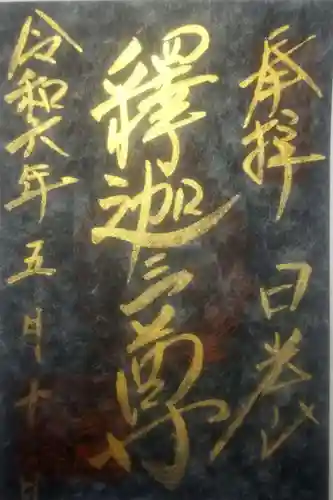 奉拝 日光山
釋迦三尊
令和六年五月十日